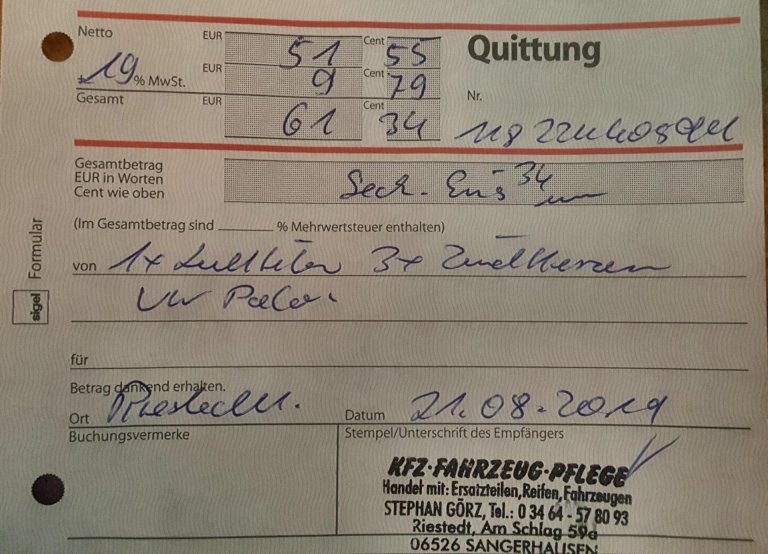 Netto EUR 51 Cent 55
Quittung
± 19 % MwSt. EUR 9 Cent 79
Gesamt EUR 61 Cent 34
Nr.
Gesamtbetrag
EUR in Worten
Cent wie oben
Sech. Eins 34
(Im Gesamtbetrag sind % Mehrwertsteuer enthalten)
von 1x Luftfilter 3x Zündkerzen
VW Polo.
für
Betrag dankend erhalten.
Ort Datum 21.08.2019
Buchungsvermerke
Stempel/Unterschrift des Empfängers
KFZ-FAHRZEUG-PFLEGE
Handel mit: Ersatzteilen, Reifen, Fahrzeugen
STEPHAN GÖRZ, Tel.: 0 34 64 - 57 80 93
Riestedt, Am Schlag 59a
06526 SANGERHAUSEN
sigel Formular